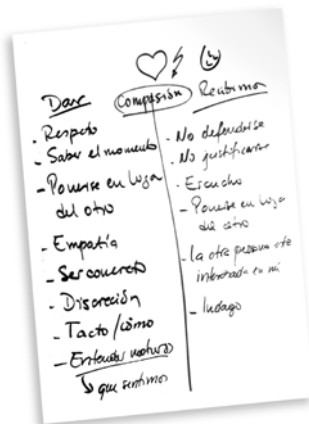 Dar
Compasión
Recibimos
- Respeto
- Saber el momento
- Ponerse en lugar
del otro
- Empatía
- Ser concreto
- Discreción
- Tacto / cómo
- Entender nosotros
↳ que sentimos
- No defenderse
- No justificarse
- Escucho
- Ponerse en lugar
del otro
- la otra persona está
interesada en mí
- Indago